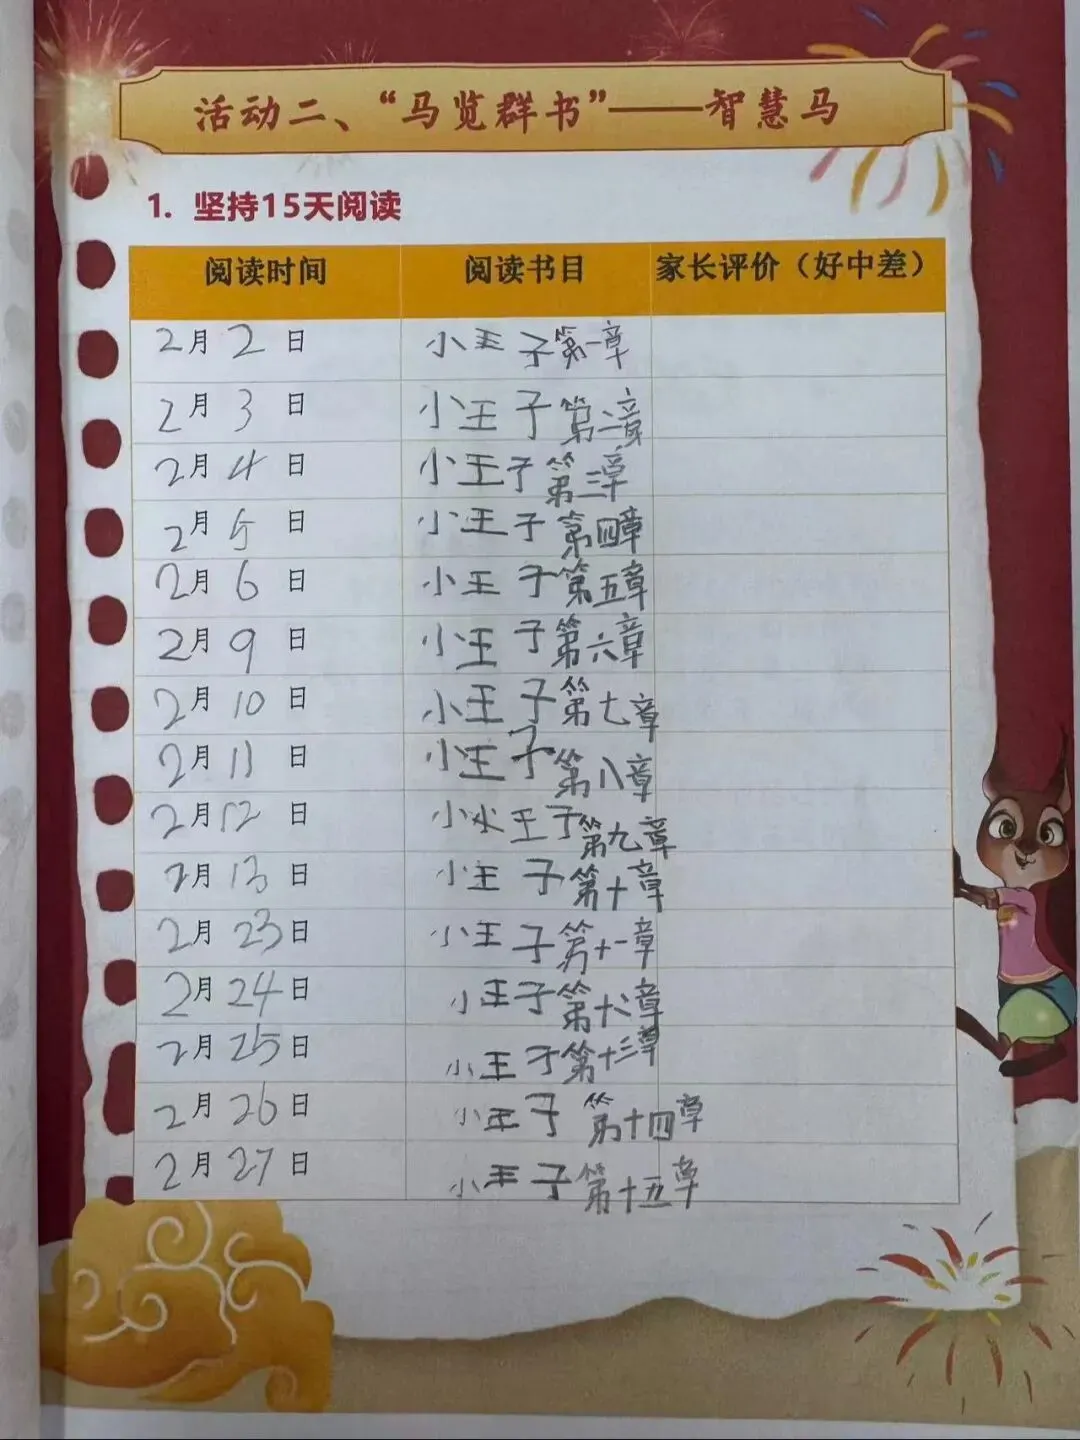 活动二、“马览群书”——智慧马
1. 坚持15天阅读
阅读时间 阅读书目 家长评价（好中差）
2月2日 小王子第一章
2月3日 小王子第二章
2月4日 小王子第三章
2月5日 小王子第四章
2月6日 小王子第五章
2月9日 小王子第六章
2月10日 小王子第七章
2月11日 小王子第八章
2月12日 小水王子第九章
2月13日 小王子第十章
2月23日 小王子第十一章
2月24日 小王子第十二章
2月25日 小王子第十三章
2月26日 小王子第十四章
2月27日 小王子第十五章